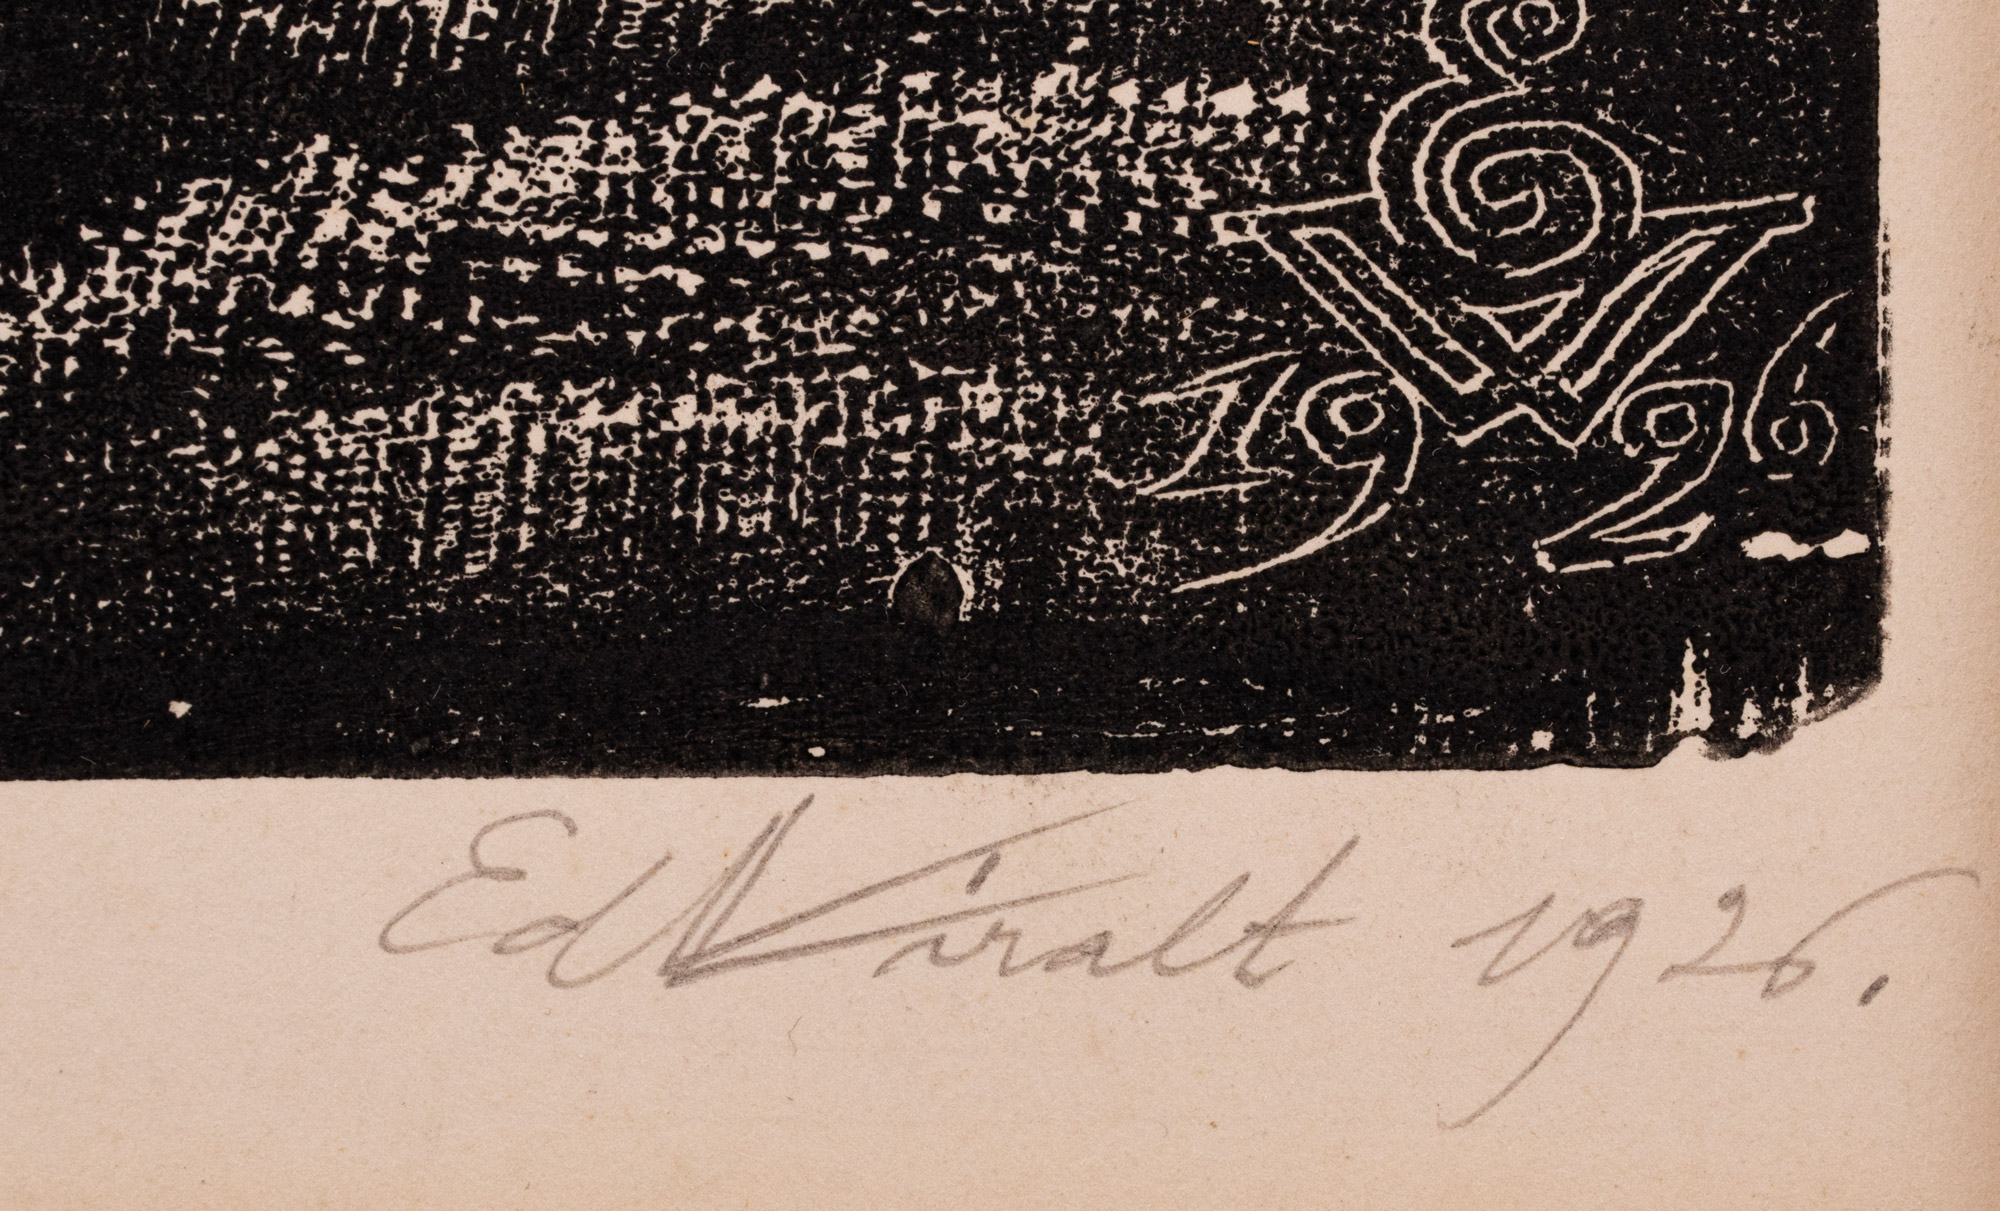 EV
1926
Ed Viralt 1926.